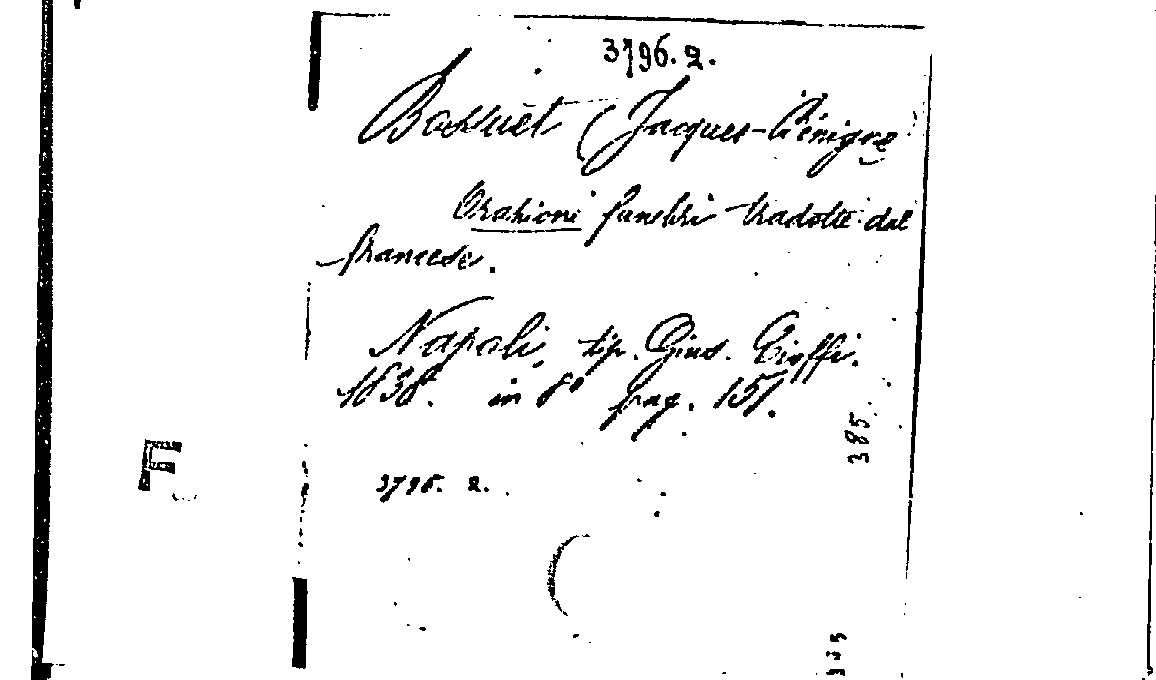 3796. 2.
Bossuet (Jacques-Bénigne)
Orazioni funebri tradotte dal
francese.
Napoli, tip. Gius. Cioffi.
1838. in 8° pag. 151.
385
3796. 2.
F
385